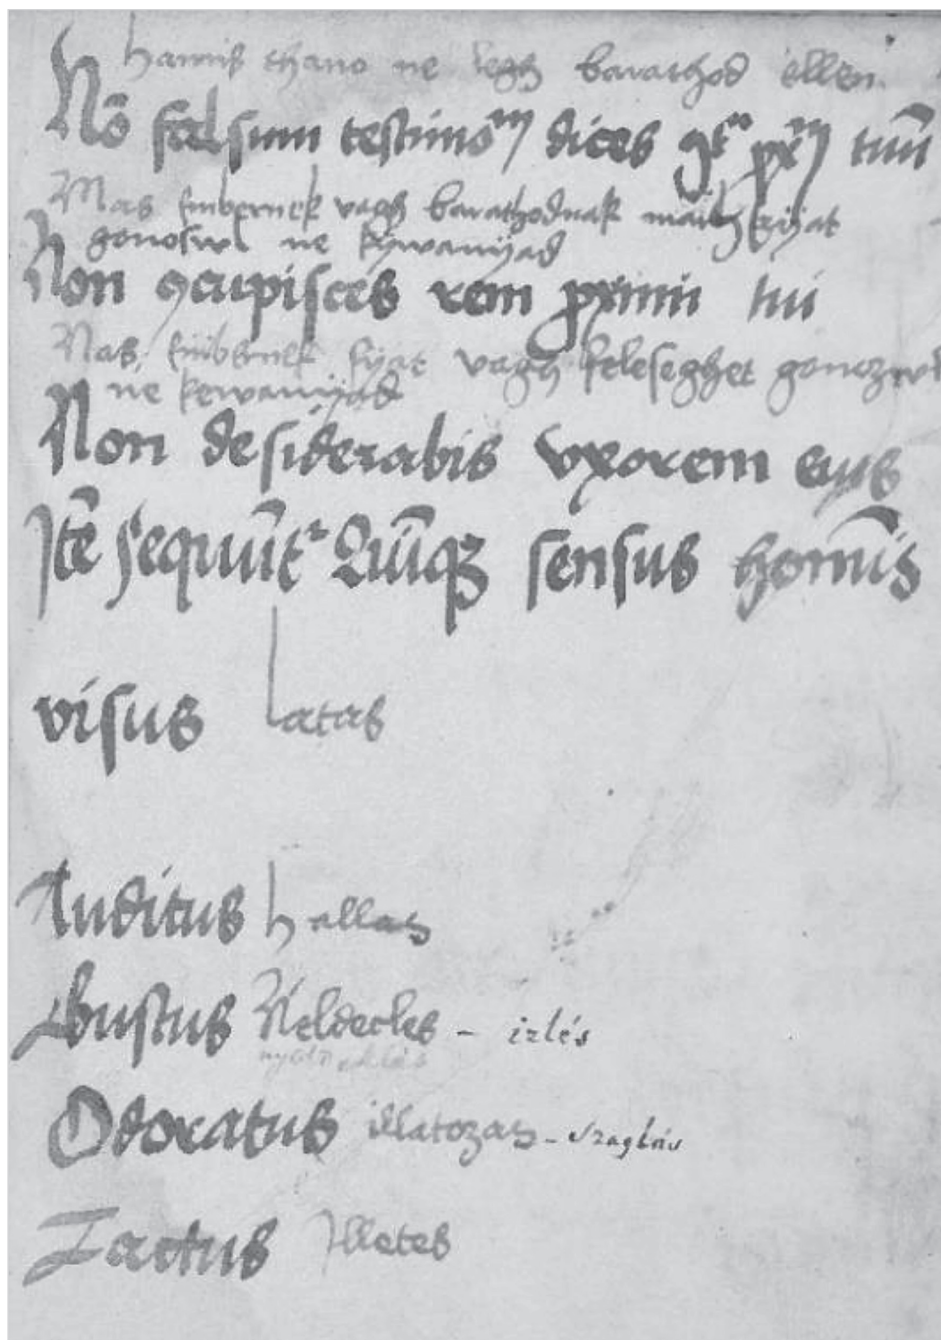 hamis thano ne legh barathod ellen
Nō falsum testimoᵐ dices 9tᵃ pxᵐ tuū
Mas embernek vagh barathodnak
gonoswl ne kywanyad
Non 9cupisces rem pximi tui
Mas embernek vagh feleseghet
ne kewanyad
Non desiderabis vxorem eius
Itē sequūtʳ Quīqꝫ sensus homīs
visus latas
Auditus hallas
Gustus Neldecles - izlés
Odoratus illatozas - szaglás
Tactus Illetes